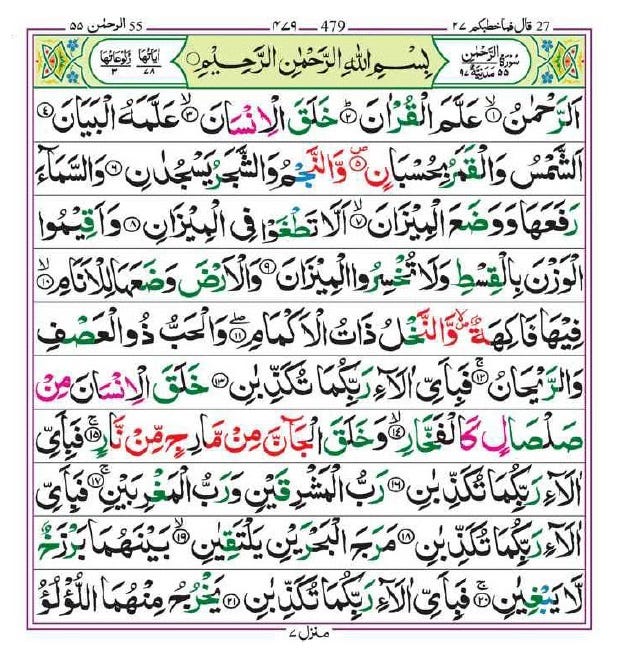 27 قال فما خطبکم ٢٧ 479 ۴۷۹ 55 الرحمٰن ۵۵
سُوْرَةُ الرَّحْمٰنِ مَدَنِيَّةٌ ۵۵ ۹۷ بِسْمِ اللّٰهِ الرَّحْمٰنِ الرَّحِيْمِ اٰيَاتُهَا ۷۸ رُكُوْعَاتُهَا ۳
اَلرَّحْمٰنُ ۙ﴿۱﴾ عَلَّمَ الْقُرْاٰنَ ؕ﴿۲﴾ خَلَقَ الْاِنْسَانَ ۙ﴿۳﴾ عَلَّمَهُ الْبَيَانَ ﴿۴﴾
اَلشَّمْسُ وَالْقَمَرُ بِحُسْبَانٍ ۪﴿۵﴾ وَّالنَّجْمُ وَالشَّجَرُ يَسْجُدٰنِ ﴿۶﴾ وَالسَّمَآءَ
رَفَعَهَا وَوَضَعَ الْمِيْزَانَ ۙ﴿۷﴾ اَلَّا تَطْغَوْا فِى الْمِيْزَانِ ﴿۸﴾ وَاَقِيْمُوا
الْوَزْنَ بِالْقِسْطِ وَلَا تُخْسِرُوا الْمِيْزَانَ ﴿۹﴾ وَالْاَرْضَ وَضَعَهَا لِلْاَنَامِ ۙ﴿۱۰﴾
فِيْهَا فَاكِهَةٌ ۪ۙ وَّالنَّخْلُ ذَاتُ الْاَكْمَامِ ۖ﴿۱۱﴾ وَالْحَبُّ ذُو الْعَصْفِ
وَالرَّيْحَانُ ۚ﴿۱۲﴾ فَبِاَىِّ اٰلَآءِ رَبِّكُمَا تُكَذِّبٰنِ ﴿۱۳﴾ خَلَقَ الْاِنْسَانَ مِنْ
صَلْصَالٍ كَالْفَخَّارِ ۙ﴿۱۴﴾ وَخَلَقَ الْجَآنَّ مِنْ مَّارِجٍ مِّنْ نَّارٍ ۚ﴿۱۵﴾ فَبِاَىِّ
اٰلَآءِ رَبِّكُمَا تُكَذِّبٰنِ ﴿۱۶﴾ رَبُّ الْمَشْرِقَيْنِ وَرَبُّ الْمَغْرِبَيْنِ ۚ﴿۱۷﴾ فَبِاَىِّ
اٰلَآءِ رَبِّكُمَا تُكَذِّبٰنِ ﴿۱۸﴾ مَرَجَ الْبَحْرَيْنِ يَلْتَقِيٰنِ ۙ﴿۱۹﴾ بَيْنَهُمَا بَرْزَخٌ
لَّا يَبْغِيٰنِ ۚ﴿۲۰﴾ فَبِاَىِّ اٰلَآءِ رَبِّكُمَا تُكَذِّبٰنِ ﴿۲۱﴾ يَخْرُجُ مِنْهُمَا اللُّؤْلُؤُ
منزل ۷